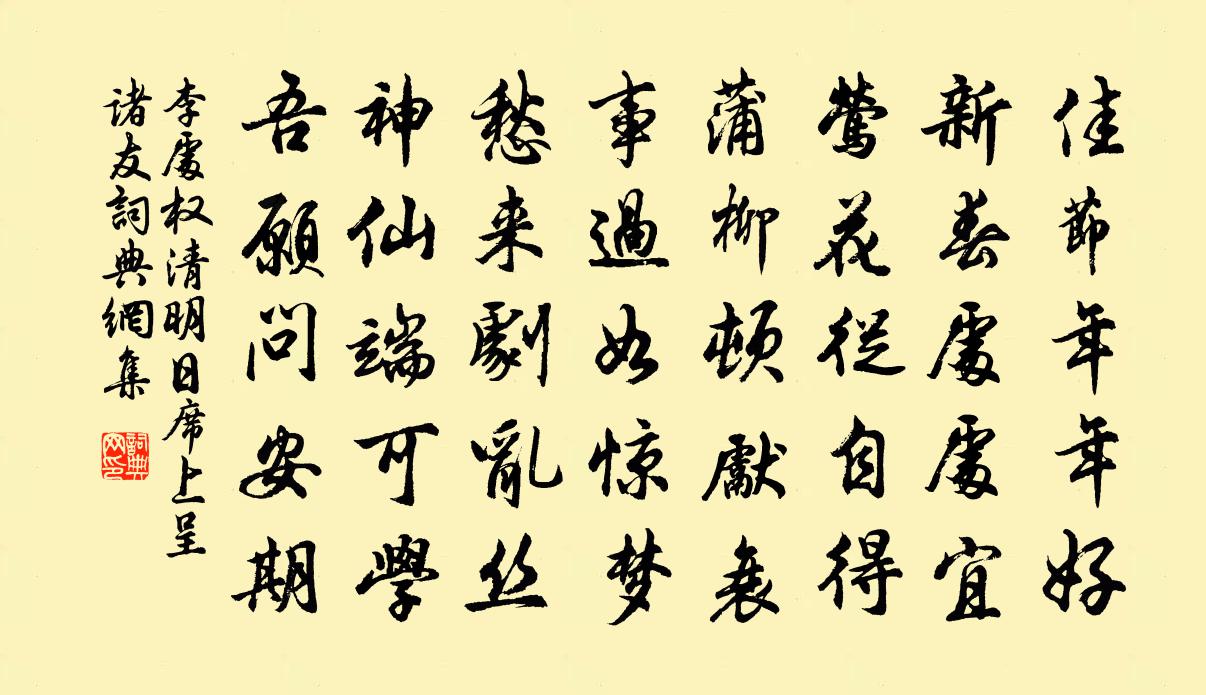 佳節年年好
新春處處宜
鶯花從自得
蒲柳頓獻衰
事過如惊梦
愁来劇亂丝
神仙端可學
吾願問安期
李處权清明日席上呈
諸友詞典網集
詞典
网印